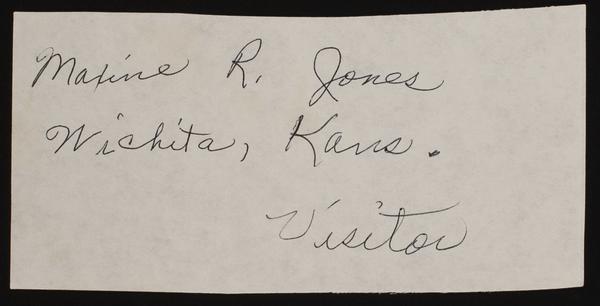 Maxine R. Jones
Wichita, Kans.
Visitor